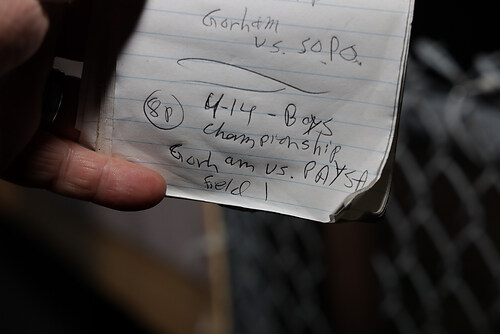 Gorham
vs. SOPO.
8P U-14 - Boys
Championship
Gorham vs. PAYSA
field 1